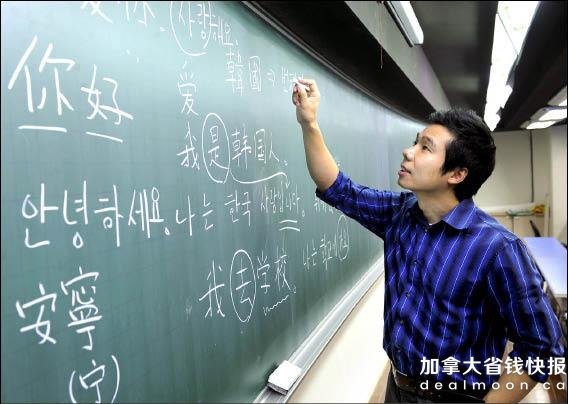 你. (사랑)해요.
韓國 ⇒
你好
爱
我是韩国人.
안녕하세요. 나는 한국 사람입니다.
我去学校. 나는 학교에
安寧
(宁)
加拿大省钱快报
dealmoon.ca